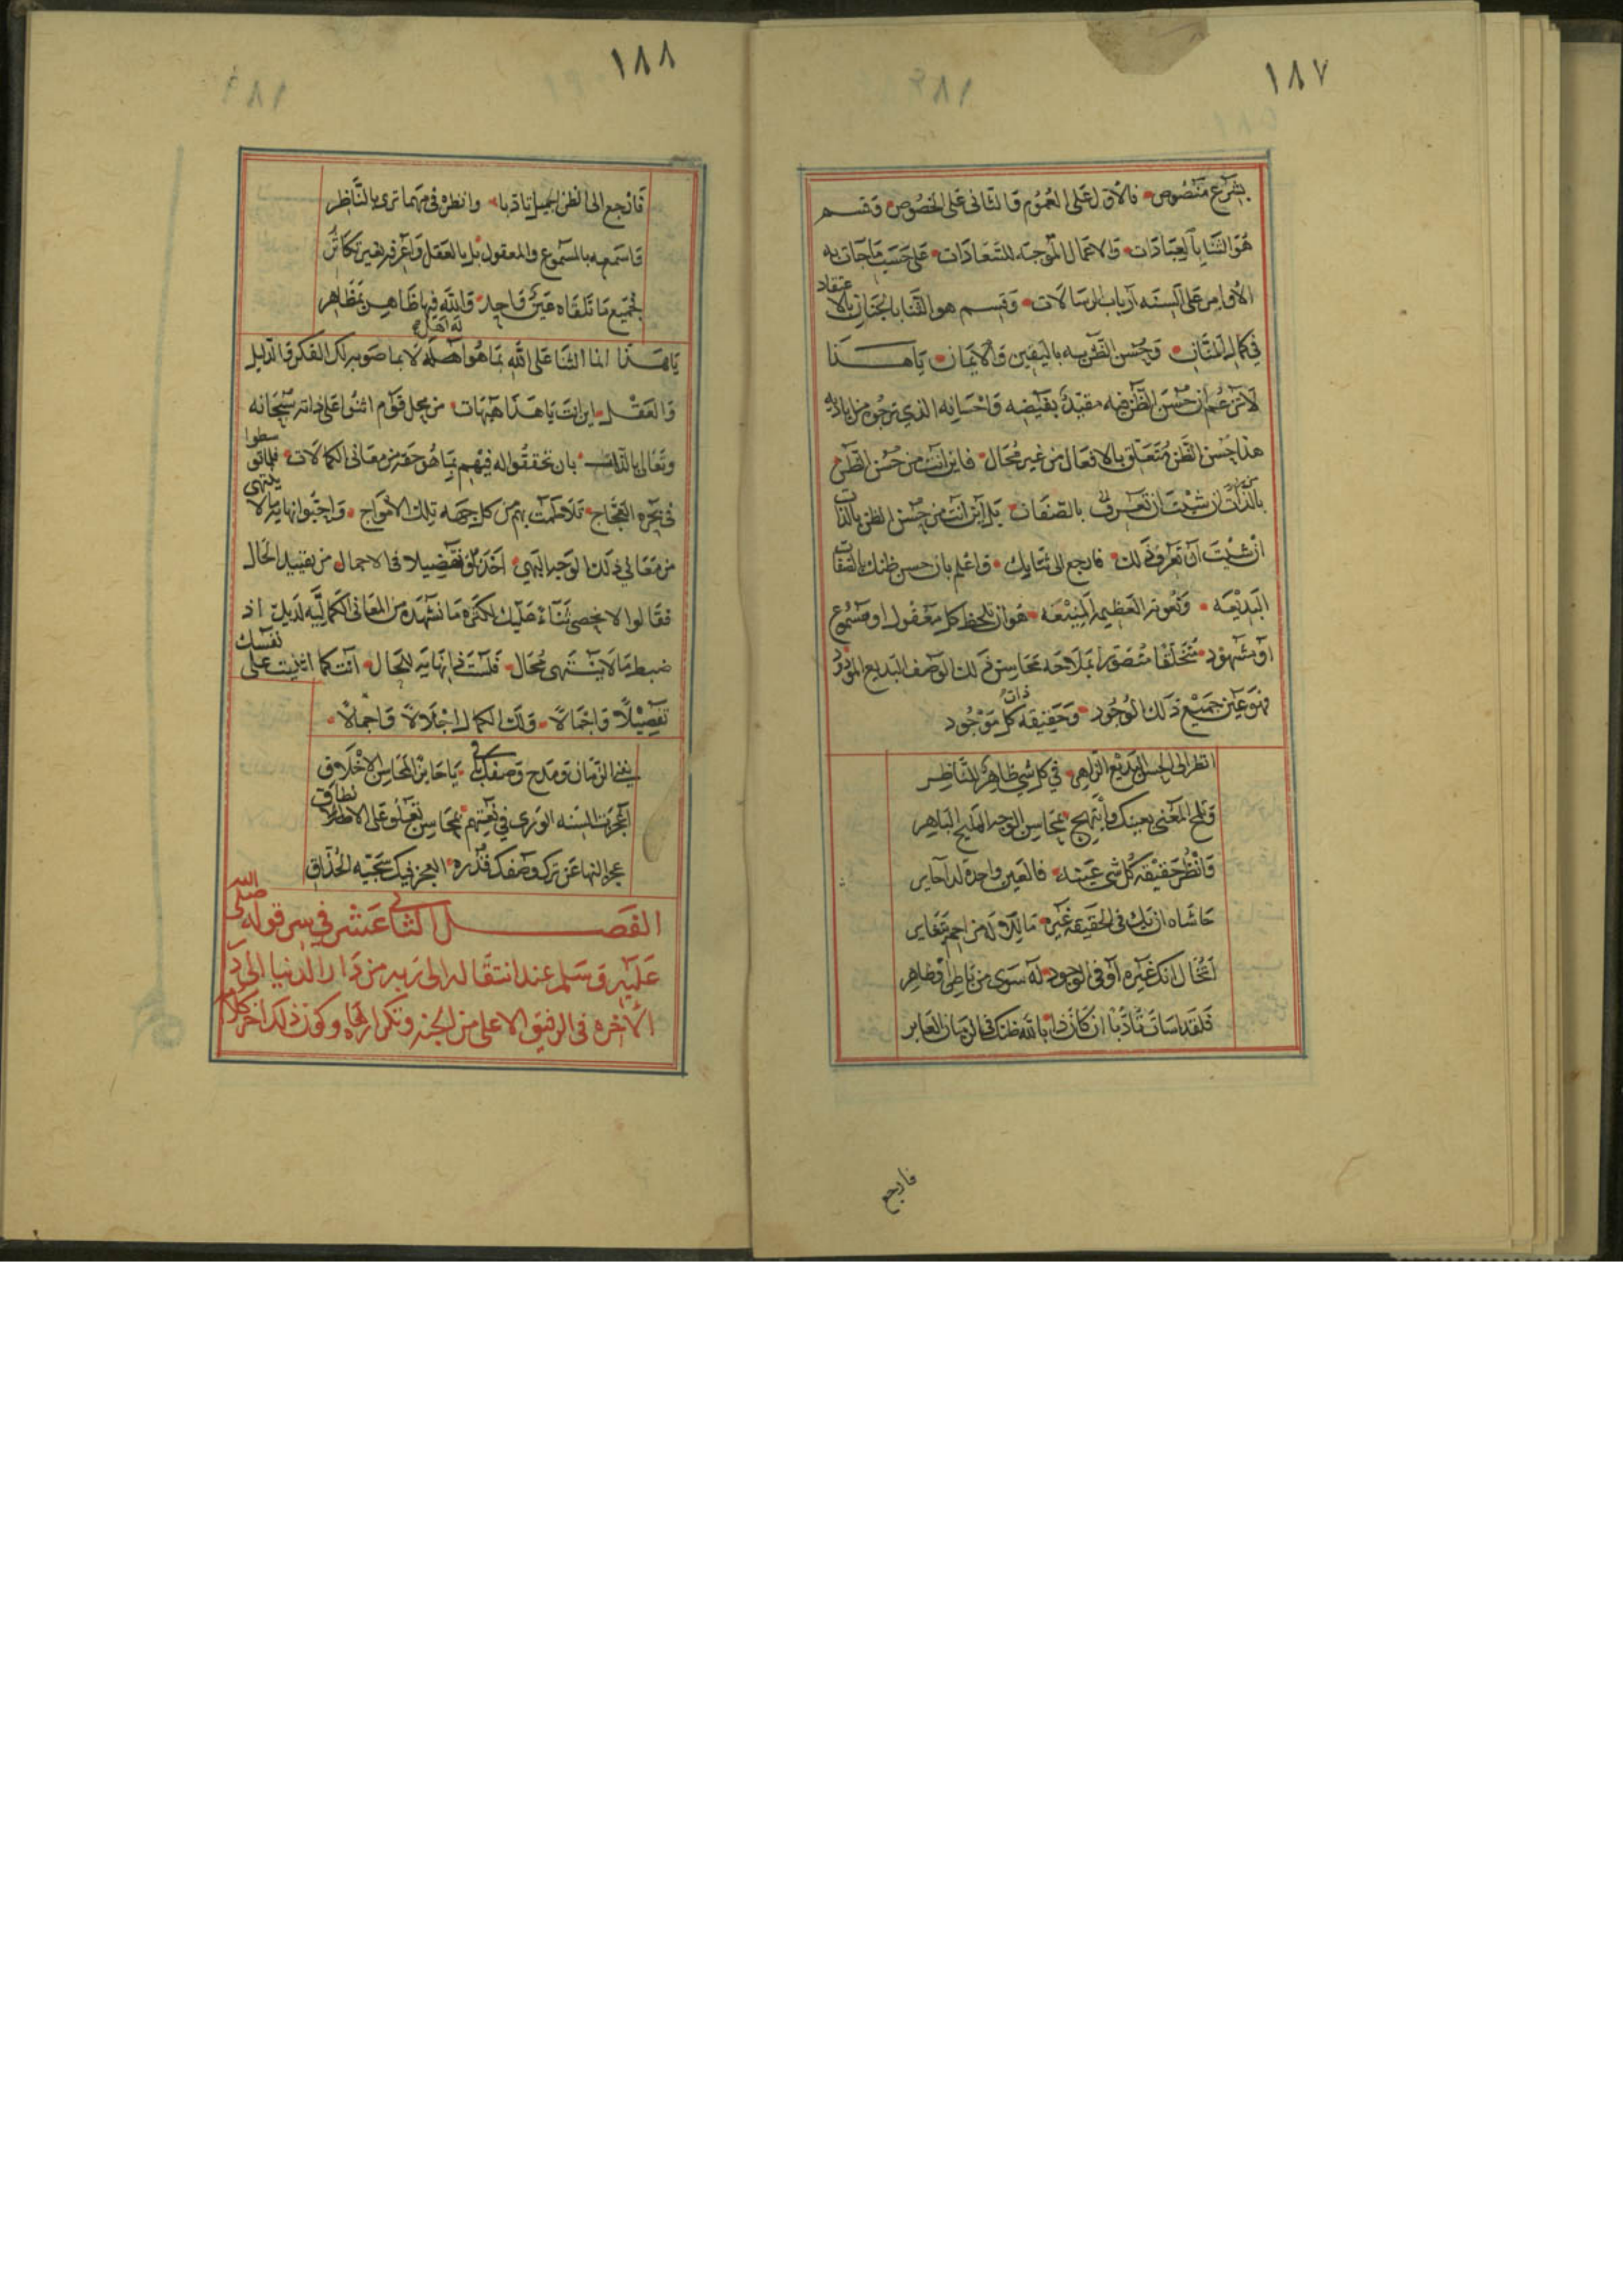 ١٨٧
بشرع منصوص فالأول على العموم والثاني على الخصوص وقسم
هو الثنا بالعبادات والاعمال الموجبه للسعادات على حسب ما جات به
الأوامر على ألسنه أرباب الرسالات وقسم هو الثنا بالجنان بالا
عتقاد
في كمال المنان وحسن الظن به باليقين والايمان يا هذا
لا تزعم ان حسن الظن به مقيد بفيضه واحسانه الذي ترجوه من اياديه
هذا حسن الظن متعلق بالافعال من غير محال فاين انت من حسن الظن
بالذات ان شيت ان تعرف بالصفات بل أين أنت من حسن الظن بالذات
ان شيت أن تعرف ذلك فارجع الى ثنايك واعلم بان حسن ظنك بالصفات
البديعه ونعوته العظيمه المنيعه هو ان تلحظ كل معقول او مسموع
أو مشهود متخلقا متصورا بملاحه محاسن ذلك الوصف البديع
فهو عين جميع ذلك الوجود وحقيقة ذات كل موجود
انظر الى الحسن البديع الزاهر في كل شي ظاهر للناظر
والمح المعنى بعينك وأبتهج بمحاسن الوجه المليح الباهر
وانظر حقيقة كل شي عينه فالعين واحدة لدا
حاشاه ان يك في الحقيقه غيره ما للاوله من
أتخال انك غيره أو في الوجود له سوى من باطن او ظاهر
فلقد اسات تأدبا ان كان ذا بالله ظنك في الزمان الغابر
فارجع
١٨٨
فارجع الى الظن الجميل تادبا وانظره في مهما ترى بالناظر
واسمعه بالمسموع والمعقول بل بالعقل واعرفه بغير تكاثر
فجميع ما تلقاه عين واحد والله فيها ظاهر بمظاهر
يا هذا انما الثنا على الله بما هو له اهل لا بما صوبه لك الفكر والدليل
والعقل اين انت يا هذا هيهات من محل قوم اثنوا على ذاته سبحانه
وتعالى بالذات بان تحققوا له فيهم بما هو حقه من معاني الكمالات فلما توسطوا
في بحره العجاج تلاطمت بهم من كل جهه تلك الامواج واحبوا نهايه ما لا ينتهى
من معاني ذلك الوجه البهي اخذ تفضيلا في الاجمال من تقييد الحال
فقالوا لا نحصي ثناء عليك لكثره ما نشهده من المعاني الكماليه لديك اذ
ضبط ما لا يتنهى محال فلست ذا نهايه بحال أنت كما اثنيت على نفسك
تفصيلا واجمالا ولك الكمال اجلالا واجمالا
يفنى الزمان ومدح وصفك باقي يا حايز المحاسن الاخلاق
أعجزت السنه الورى في نعتهم بمحاسن تعلو على الاطلاق
عجز النها عن ترك وصفك قدره العجز فيك سجيه الحذاق
الفصل الثاني عشر في سر قوله صلى الله
عليه وسلم عند انتقاله الى ربه من دار الدنيا الى دار
الأخره في الرفيق الاعلى من الجنه وتكراره لها وكون ذلك اخر كلام